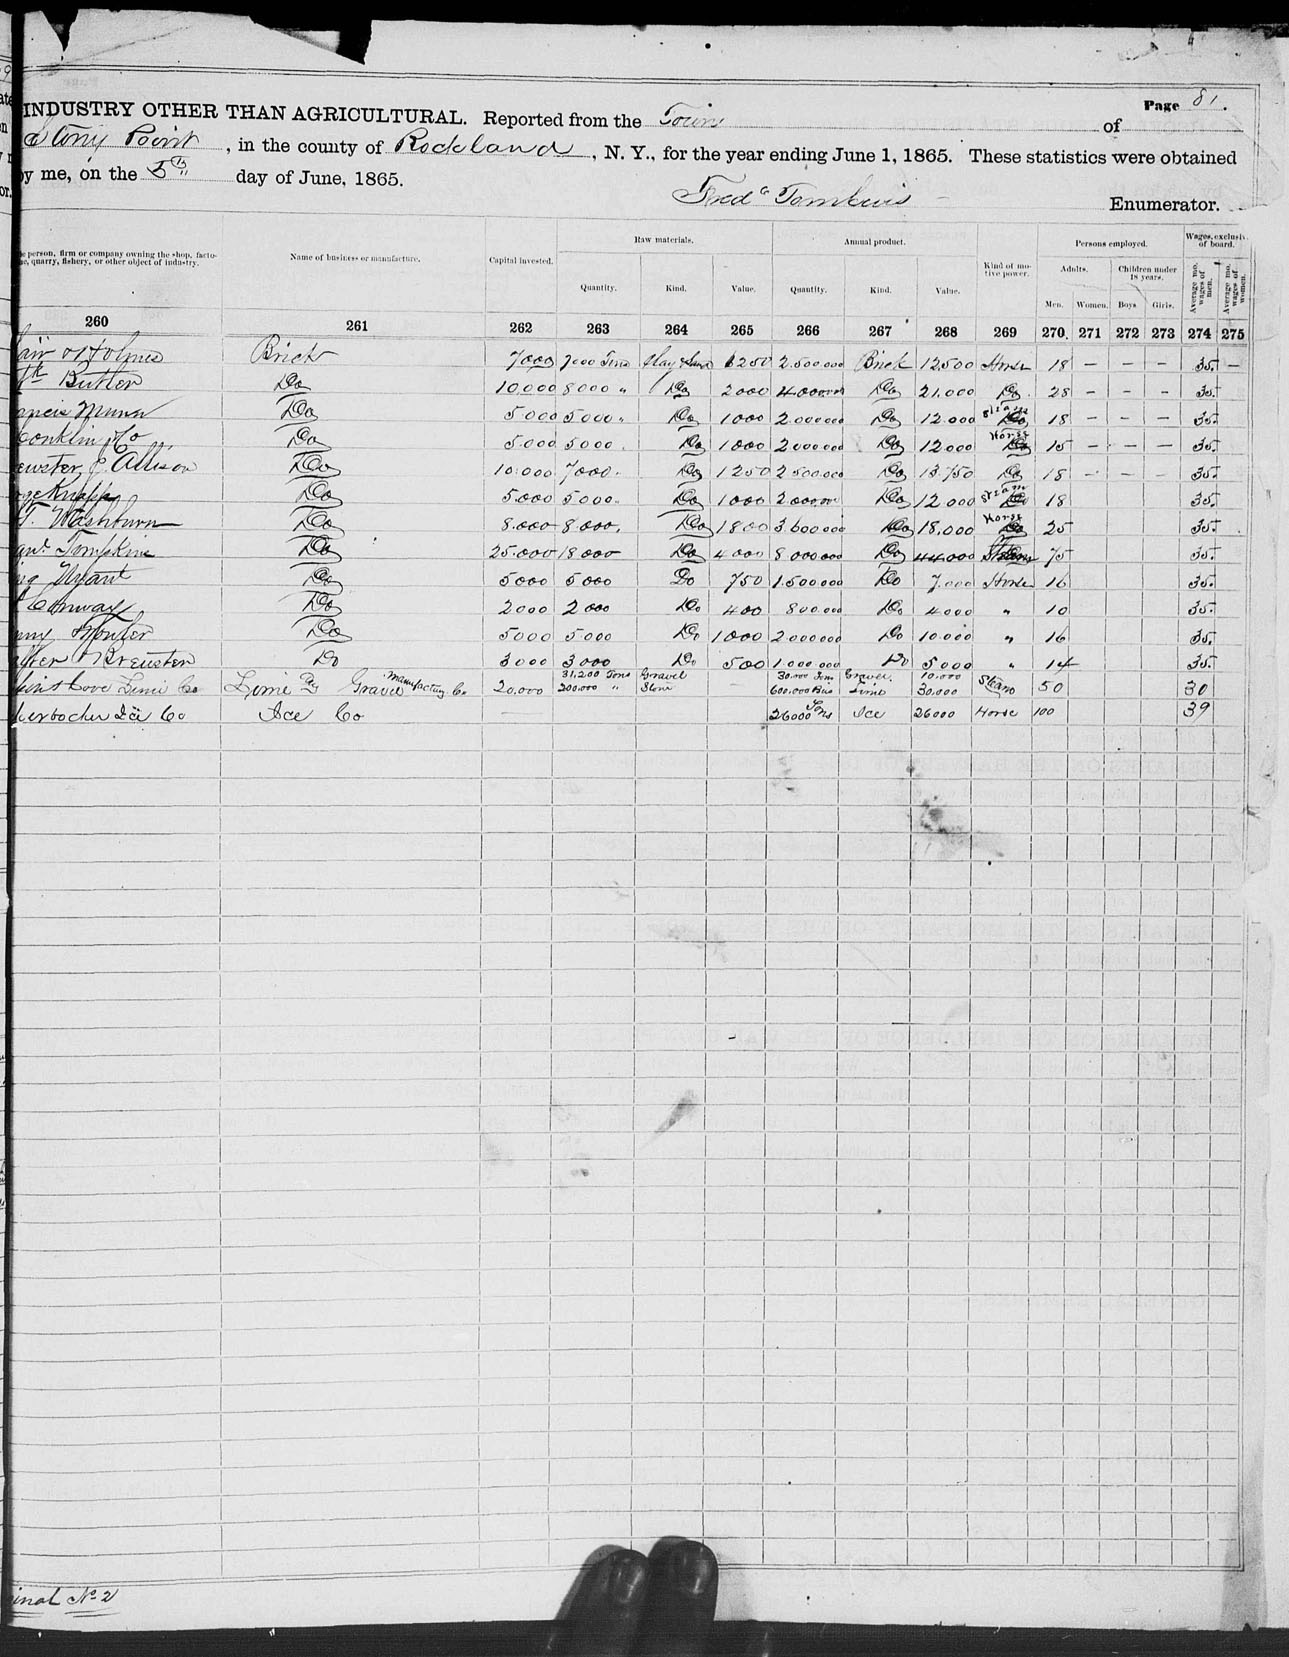 Page 81.
INDUSTRY OTHER THAN AGRICULTURAL. Reported from the Town of
Stony Point, in the county of Rockland, N. Y., for the year ending June 1, 1865. These statistics were obtained
by me, on the 5th day of June, 1865. Enumerator.
e person, firm or company owning the shop, facto-
quarry, fishery, or other object of industry.
Name of business or manufacture.
Capital invested.
Raw materials.
Quantity. Kind. Value.
Annual product.
Quantity. Kind. Value.
Kind of mo-
tive power.
Persons employed.
Adults. Children under
18 years.
Men. Women. Boys Girls.
Wages, exclusiv
of board.
Average mo. wages of men.
Average mo. wages of women.
260 261 262 263 264 265 266 267 268 269 270. 271 272 273 274 275
Holmes Brick 7000 7000 Tons Clay & Sand 1250 2.500.000 Brick 12.500 Horse 18 – – – 35. –
Butler Do 10.000 8000 " Do 2000 4.000.000 Do 21.000 Do 28 – – – 35.
ancis Munn Do 5000 5000 " Do 1000 2.000.000 Do 12.000 Steam 18 – – – 35.
Conklin & Co Do 5.000 5000 Do 1000 2.000.000 Do 12.000 Horse 15 – – – 35.
ewster & Allison Do 10.000 7000 Do 1250 2.500.000 Do 13.750 Do 18 – – – 35.
rge Knapp Do 5.000 5.000 Do 1000 2.000.000 Do 12.000 Steam 18 35.
T. Washburn Do 8.000 8.000 Do 1800 3.600.000 Do 18,000 Horse 25 35.
Tompkins Do 25.000 18000 Do 4000 8.000.000 Do 44.000 Steam 75 35.
Do 5000 5000 Do 750 1.500.000 Do 7.000 Horse 16 35.
Conway Do 2000 2000 Do 400 800.000 Do 4.000 " 10 35.
Do 5000 5000 Do 1000 2.000.000 Do 10.000 " 16 35.
Brewster Do 3000 3000 Do 500 1.000.000 Do 5000 " 14 35.
31,200 Tons Gravel 30.000 Tons Gravel 10.000
kins Cove Lime Co Lime & Gravel Manufacturing Co 20.000 200.000 " Stone 600.000 Bus Lime 30.000 Steam 50 30
kerbocker Ice Co Ice Co 26000 Tons Ice 26000 Horse 100 39
inal No 2